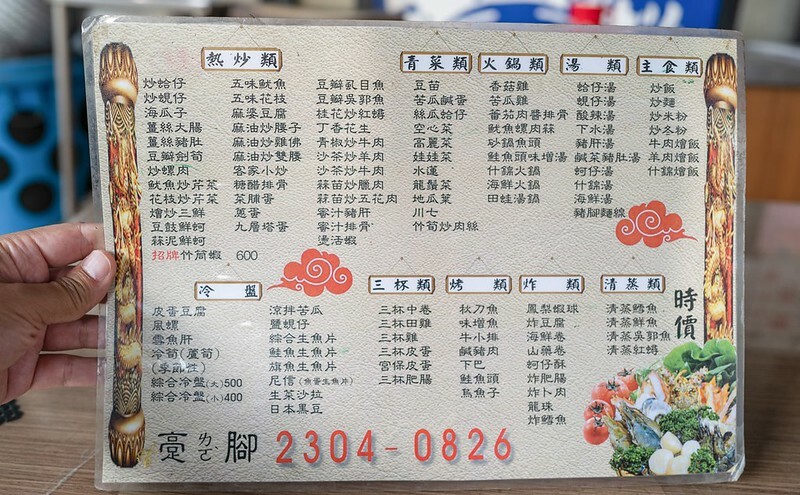 熱炒類
炒蛤仔
炒蜆仔
海瓜子
薑絲大腸
薑絲豬肚
豆瓣劍筍
炒螺肉
魷魚炒芹菜
花枝炒芹菜
燴炒三鮮
豆鼓鮮蚵
蒜泥鮮蚵
招牌竹筒蝦 600
五味魷魚
五味花枝
麻婆豆腐
麻油炒腰子
麻油炒雞佛
麻油炒雙腰
客家小炒
糖醋排骨
菜脯蛋
蔥蛋
九層塔蛋
豆瓣虱目魚
豆瓣吳郭魚
桂花炒紅蟳
丁香花生
青椒炒牛肉
沙茶炒羊肉
沙茶炒牛肉
蒜苗炒臘肉
蒜苗炒五花肉
蜜汁豬肝
蜜汁排骨
燙活蝦
青菜類
豆苗
苦瓜鹹蛋
絲瓜蛤仔
空心菜
高麗菜
娃娃菜
水蓮
龍鬚菜
地瓜葉
川七
竹筍炒肉絲
火鍋類
香菇雞
苦瓜雞
蕃茄肉醬排骨
魷魚螺肉蒜
砂鍋魚頭
鮭魚頭味增湯
什錦火鍋
海鮮火鍋
田蛙湯鍋
湯類
蛤仔湯
蜆仔湯
酸辣湯
下水湯
豬肝湯
鹹菜豬肚湯
蚵仔湯
什錦湯
海鮮湯
豬腳麵線
主食類
炒飯
炒麵
炒米粉
炒冬粉
牛肉燴飯
羊肉燴飯
什錦燴飯
冷盤
皮蛋豆腐
風螺
雲魚肝
冷筍(蘆筍)
(季節性)
綜合冷盤(大)500
綜合冷盤(小)400
涼拌苦瓜
鹽蜆仔
綜合生魚片
鮭魚生魚片
旗魚生魚片
尼信(魚蛋生魚片)
生菜沙拉
日本黑豆
三杯類
三杯中卷
三杯田雞
三杯雞
三杯皮蛋
宮保皮蛋
三杯肥腸
烤類
秋刀魚
味增魚
牛小排
鹹豬肉
下巴
鮭魚頭
烏魚子
炸類
鳳梨蝦球
炸豆腐
海鮮卷
山藥卷
蚵仔酥
炸肥腸
炸卜肉
龍珠
炸鱈魚
清蒸類
清蒸鱈魚
清蒸鮮魚
清蒸吳郭魚
清蒸紅蟳
時價
亮ㄌㄜ腳 2304-0826